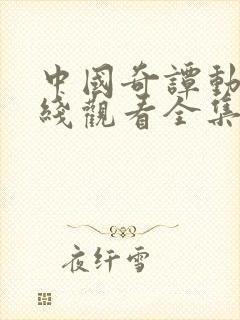 中國奇譚動
綫觀看全集
夜纤雪